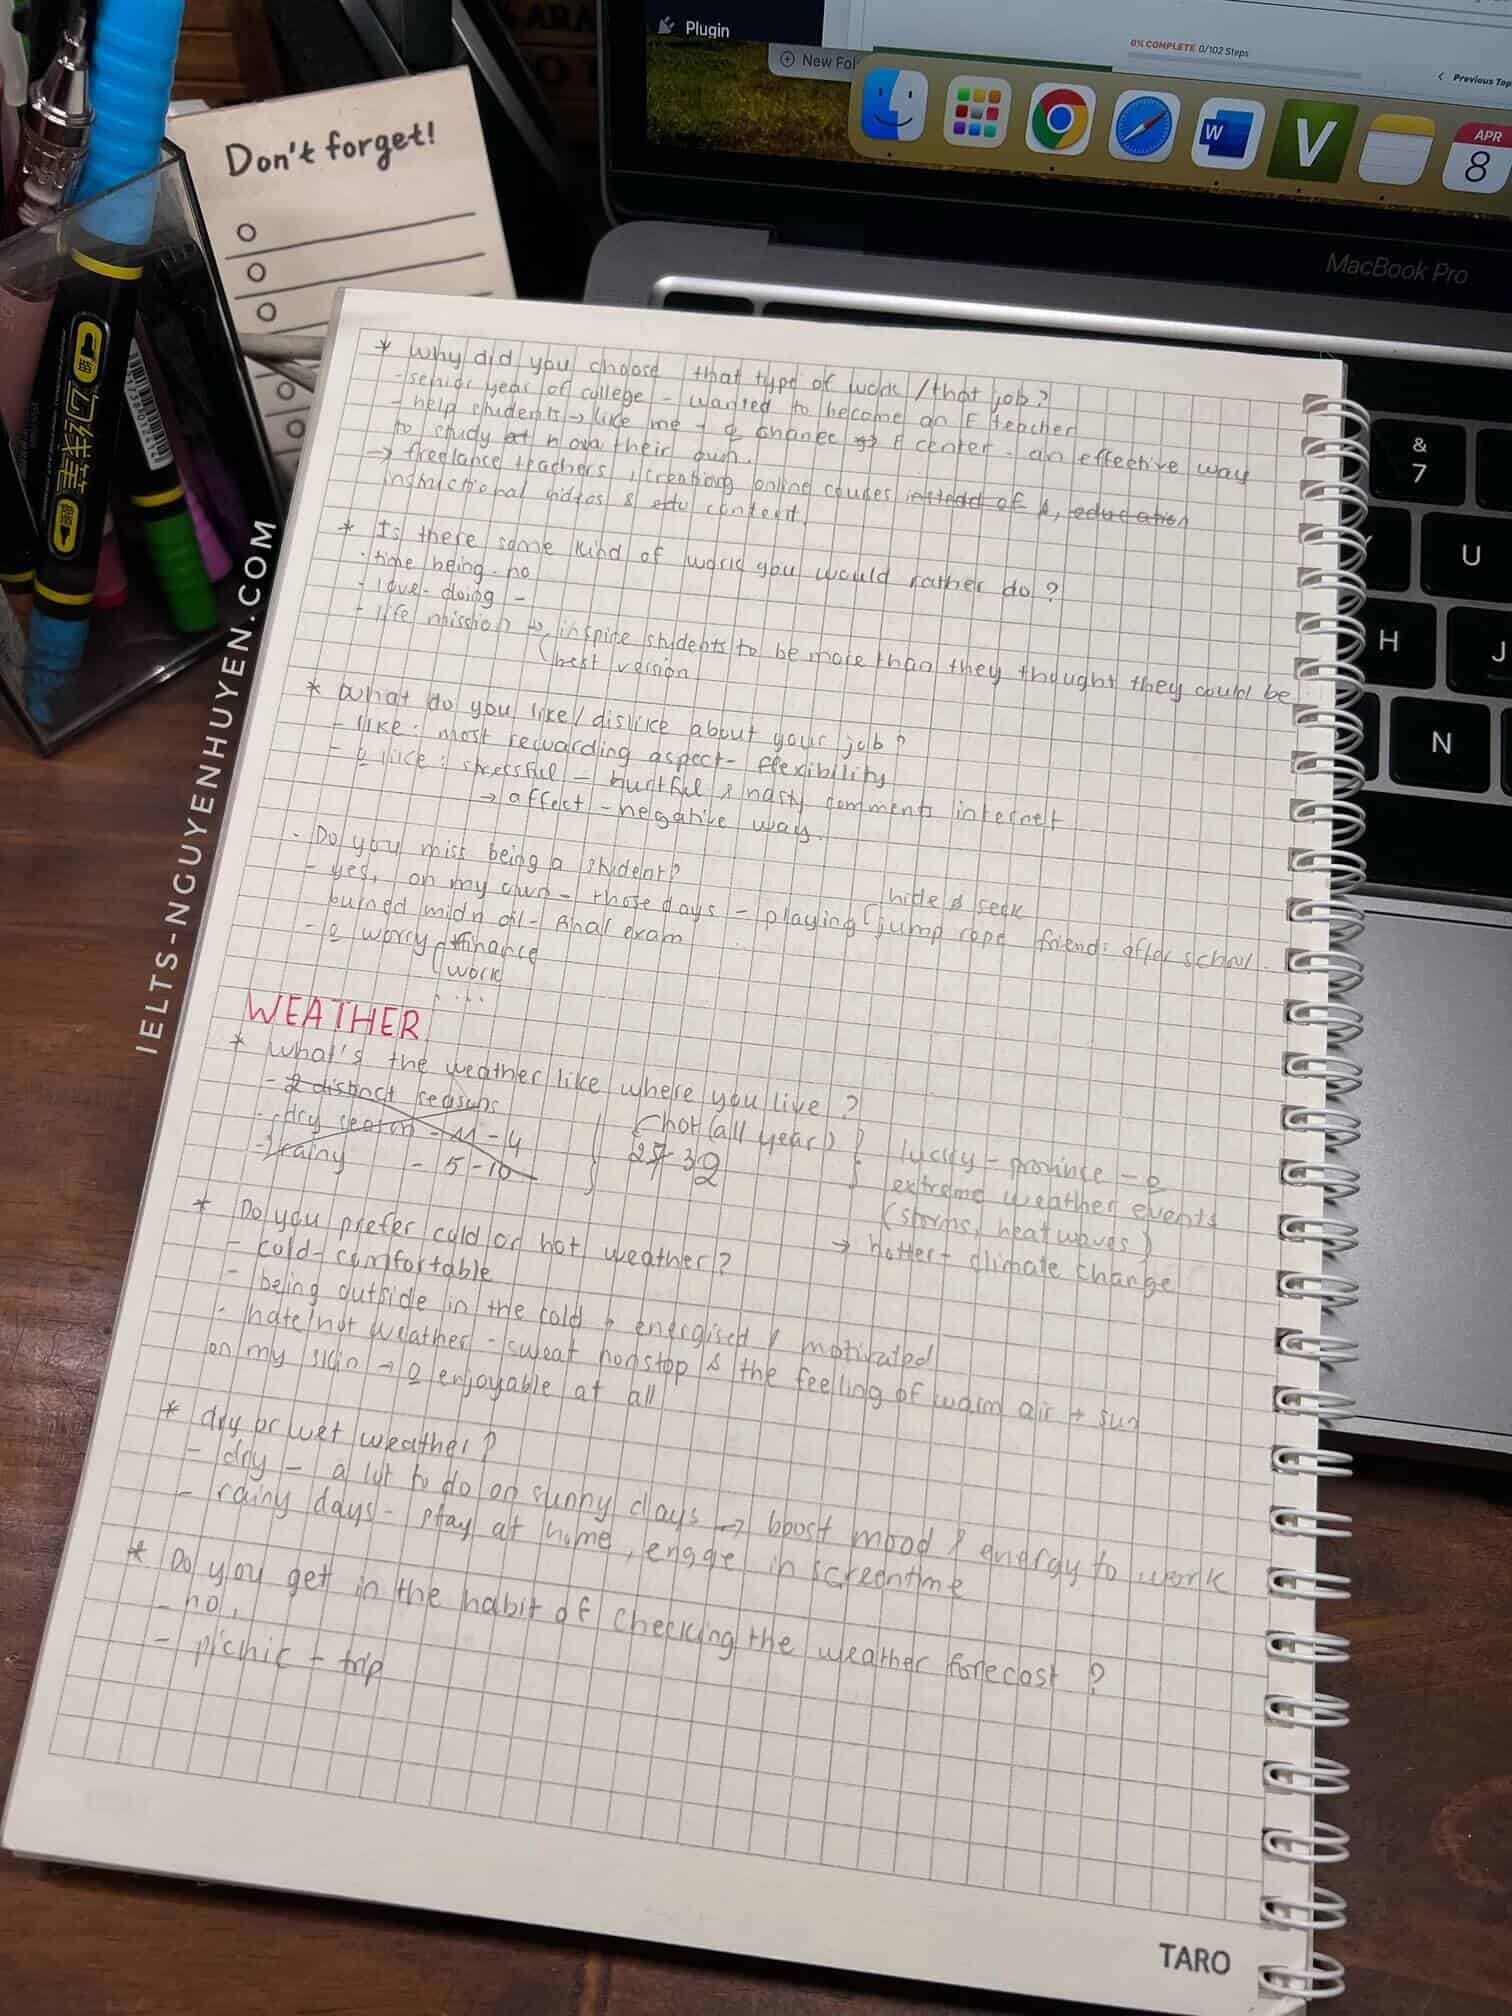 Plugin
New Fol
0% COMPLETE 0/102 Steps
Previous Top
W
V
APR
8
MacBook Pro
&
7
U
H
J
N
Don't forget!
IELTS-NGUYENHUYEN.COM
* Why did you choose that type of work / that job?
- senior year of college - wanted to become an E teacher
- help students → like me + chance → E center - an effective way
to study their own.
→ freelance teachers, creating online courses instead of education
instructional videos & edu content
* Is there some kind of work you would rather do?
- time being - no
- love - doing -
- life mission → inspire students to be more than they thought they could be
(best version
* What do you like/dislike about your job?
- like: most rewarding aspect - flexibility
- like: stressful - hurtful & nasty comments internet
→ affect - negative way.
- Do you miss being a student?
hide & seek
- yes, on my own - those days - playing jump rope friends after school.
burned midn oil - final exam
- worry finance
work
....
WEATHER
* What's the weather like where you live?
- 2 distinct seasons
- dry season - 11 - 4
- rainy - 5 - 10
hot (all year)
25 - 32
lucky - province -
extreme weather events
(storms, heatwaves)
→ hotter - climate change
* Do you prefer cold or hot weather?
- cold - comfortable
- being outside in the cold energised & motivated
- hate hot weather - sweat nonstop & the feeling of warm air + sun
on my skin → enjoyable at all
* dry or wet weather?
- dry - a lot to do on sunny days → boost mood & energy to work
- rainy days - stay at home, engge in screentime
* Do you get in the habit of checking the weather forecast?
- no,
- picnic + trip
TARO